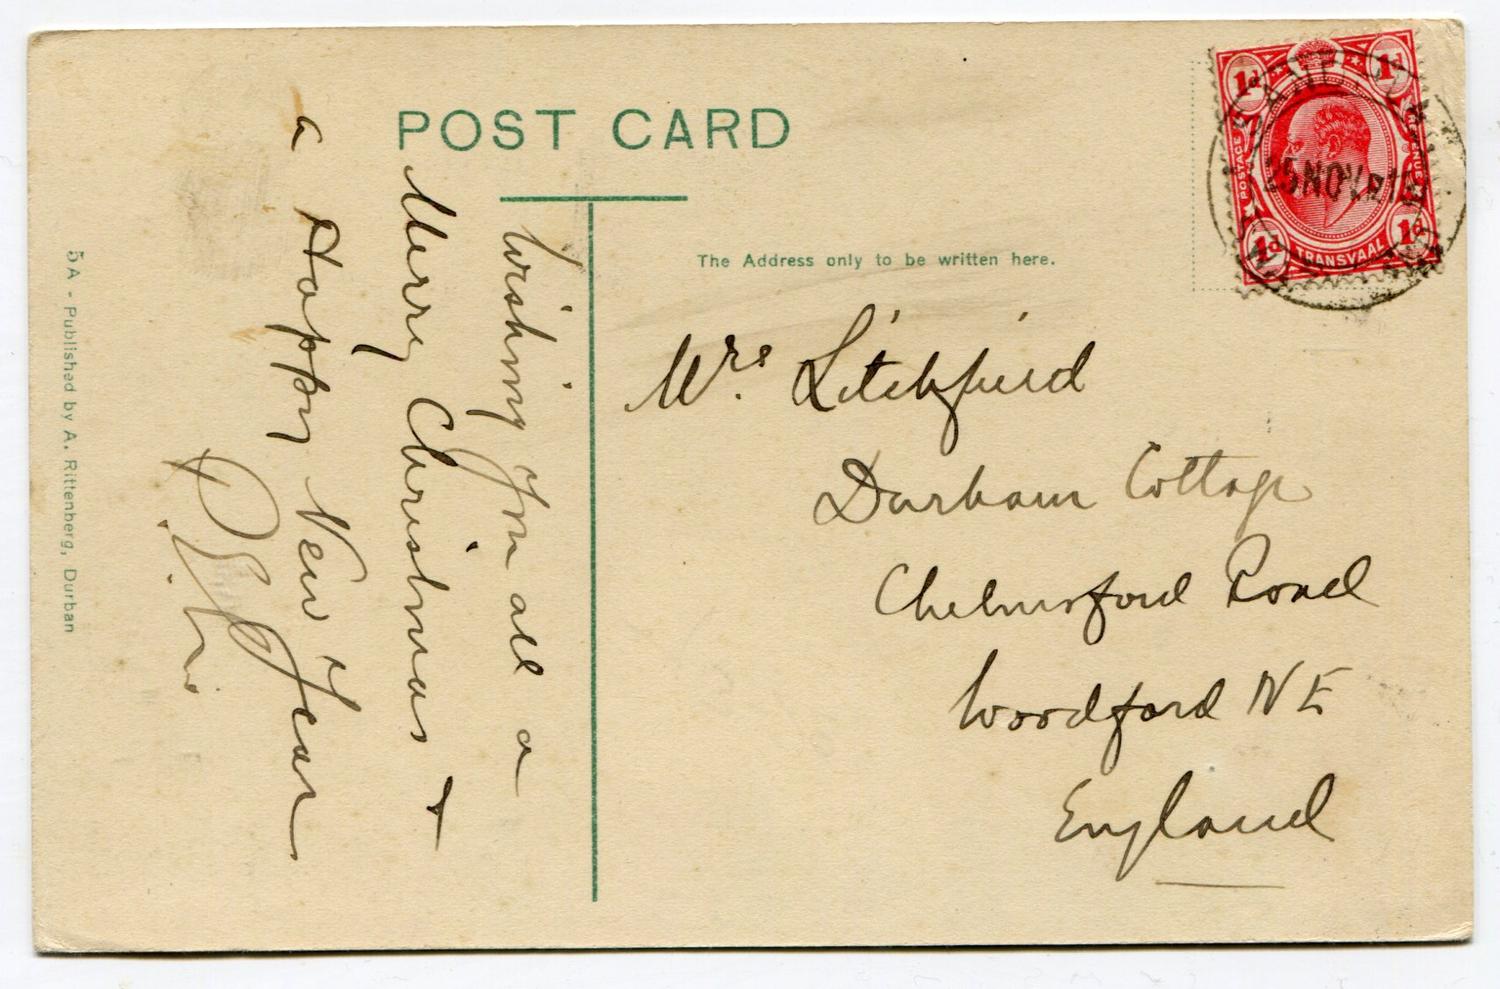 POST CARD
Wishing you all a
Merry Christmas +
a Happy New Year
The Address only to be written here.
Mrs. Litchfield
Durham Cottage
Chelmsford Road
Woodford NE
England
5A - Published by A. Rittenberg, Durban
1d 1d
POSTAGE REVENUE
1d 1d
TRANSVAAL
NOV